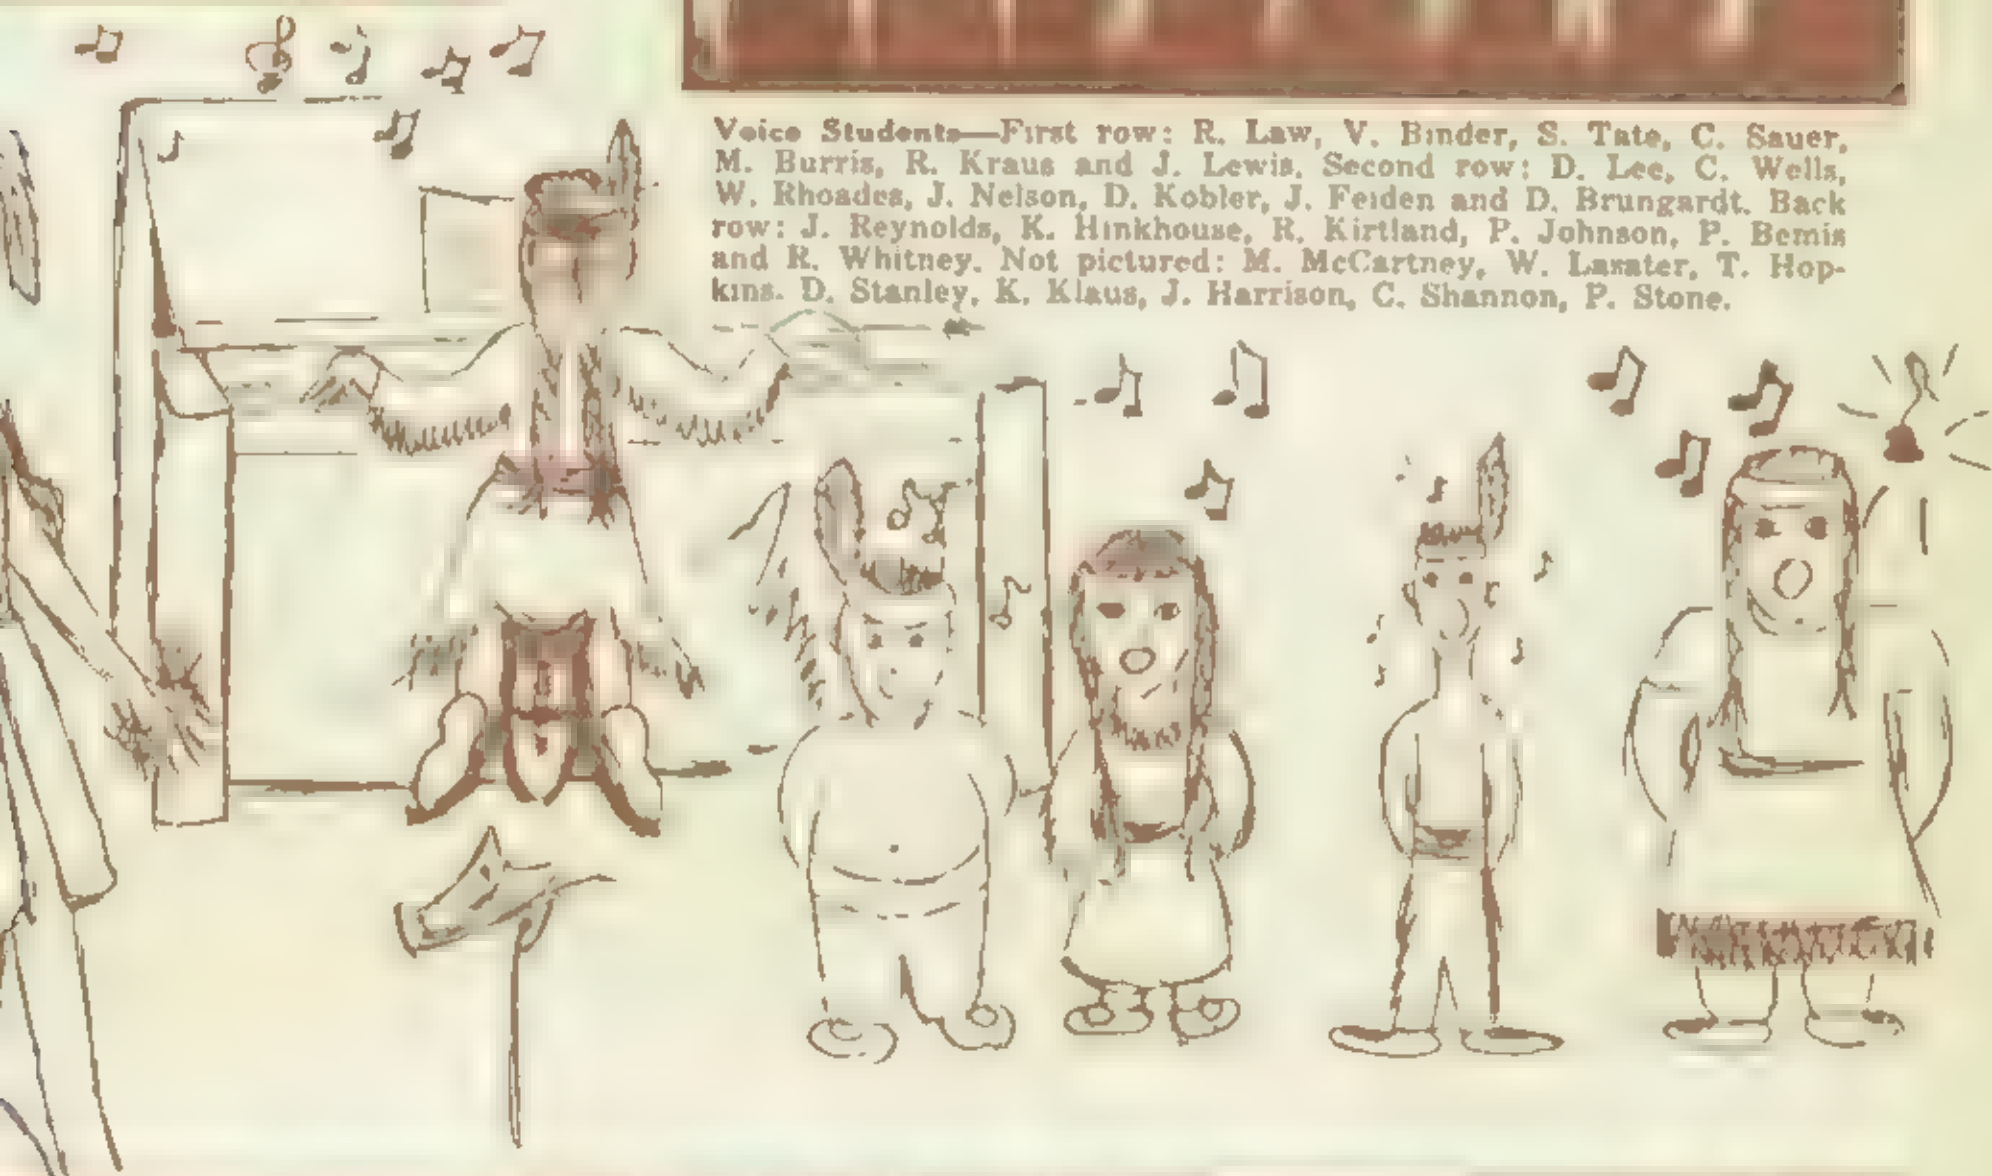 Voice Students—First row: R. Law, V. Binder, S. Tate, C. Sauer,
M. Burris, R. Kraus and J. Lewis. Second row: D. Lee, C. Wells,
W. Rhoades, J. Nelson, D. Kobler, J. Feiden and D. Brungardt. Back
row: J. Reynolds, K. Hinkhouse, R. Kirtland, P. Johnson, P. Bemis
and R. Whitney. Not pictured: M. McCartney, W. Lasater, T. Hop-
kins. D. Stanley, K. Klaus, J. Harrison, C. Shannon, P. Stone.